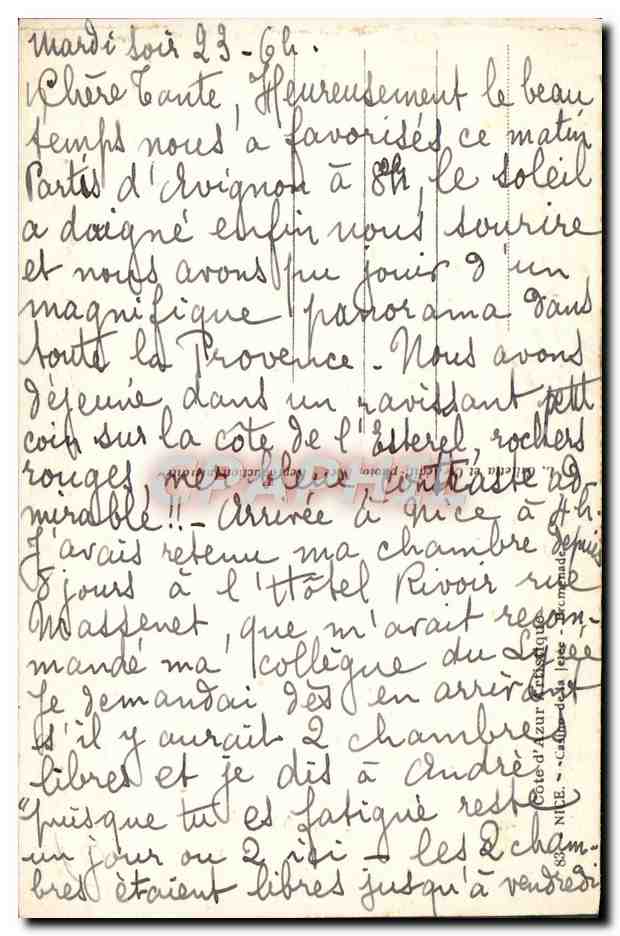 Mardi soir 23 - 6h.
Chère Tante, Heureusement le beau
temps nous a favorisés ce matin
Partis d'Avignon à 8h, le soleil
a daigné enfin nous sourire
et nous avons pu jouir d'un
magnifique panorama dans
toute la Provence - Nous avons
déjeuné dans un ravissant petit
coin sur la côte de l'Esterel, rochers
rouges, mer bleue, contraste ad-
mirable!! - Arrivée à Nice à 4h.
J'avais retenu ma chambre depuis
8 jours à l'Hôtel Rivoir rue
Massenet, que m'avait recom-
mandé ma collègue du Lycée
Je demandai dès en arrivant
s'il y aurait 2 chambres
libres et je dis à André
"puisque tu es fatigué reste
un jour ou 2 ici - les 2 cham-
bres étaient libres jusqu'à vendredi
Côte d'Azur Artistique
83 - NICE. - Casino de la Jetée - Promenade
CPARAMA